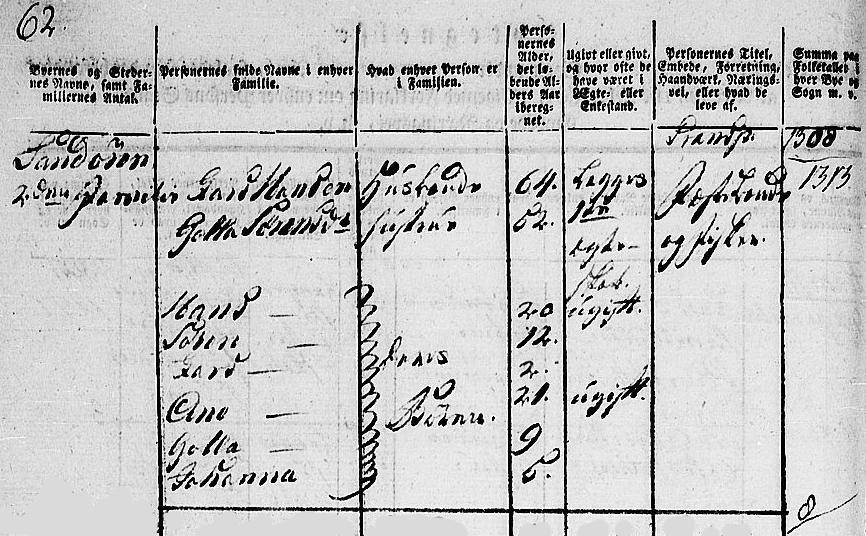 62.
Byernes og Steder-
nes Navne, samt Fa-
miliernes Antal.
Personernes fulde Navne i enhver
Familie.
Hvad enhver Person er
i Familien.
Perso-
nernes
Alder,
det lø-
bende Al-
ders Aar
iberegnet.
Ugivt eller givt,
og hvor ofte de
have været i
Ægte- eller
Enkestand.
Personernes Titel,
Embede, Forretning,
Haandværk, Nærings-
vei, eller hvad de
leve af.
Summa paa
Folketallet i
hver Bye og
Sogn m. v.
Transp. 1308
Sandören
2den Familie Gard Hansen Husbonde 64. begges 1313
Gotta Sörensd. Hustrue 52. 1ste
ægte- og Fisker.
skab.
Hans — 20 ugift.
Sören — 12.
Gard — deres 2.
Ane — Börn. 21. ugift.
Gotta — 9
Johanna 5.
8